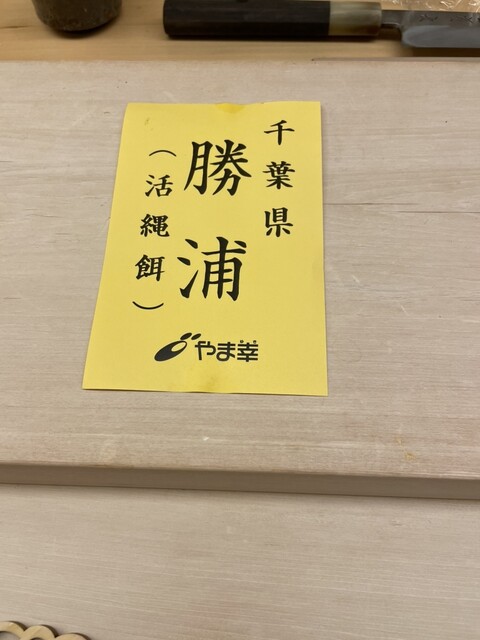 千葉県
勝浦
（活縄餌）
やま幸